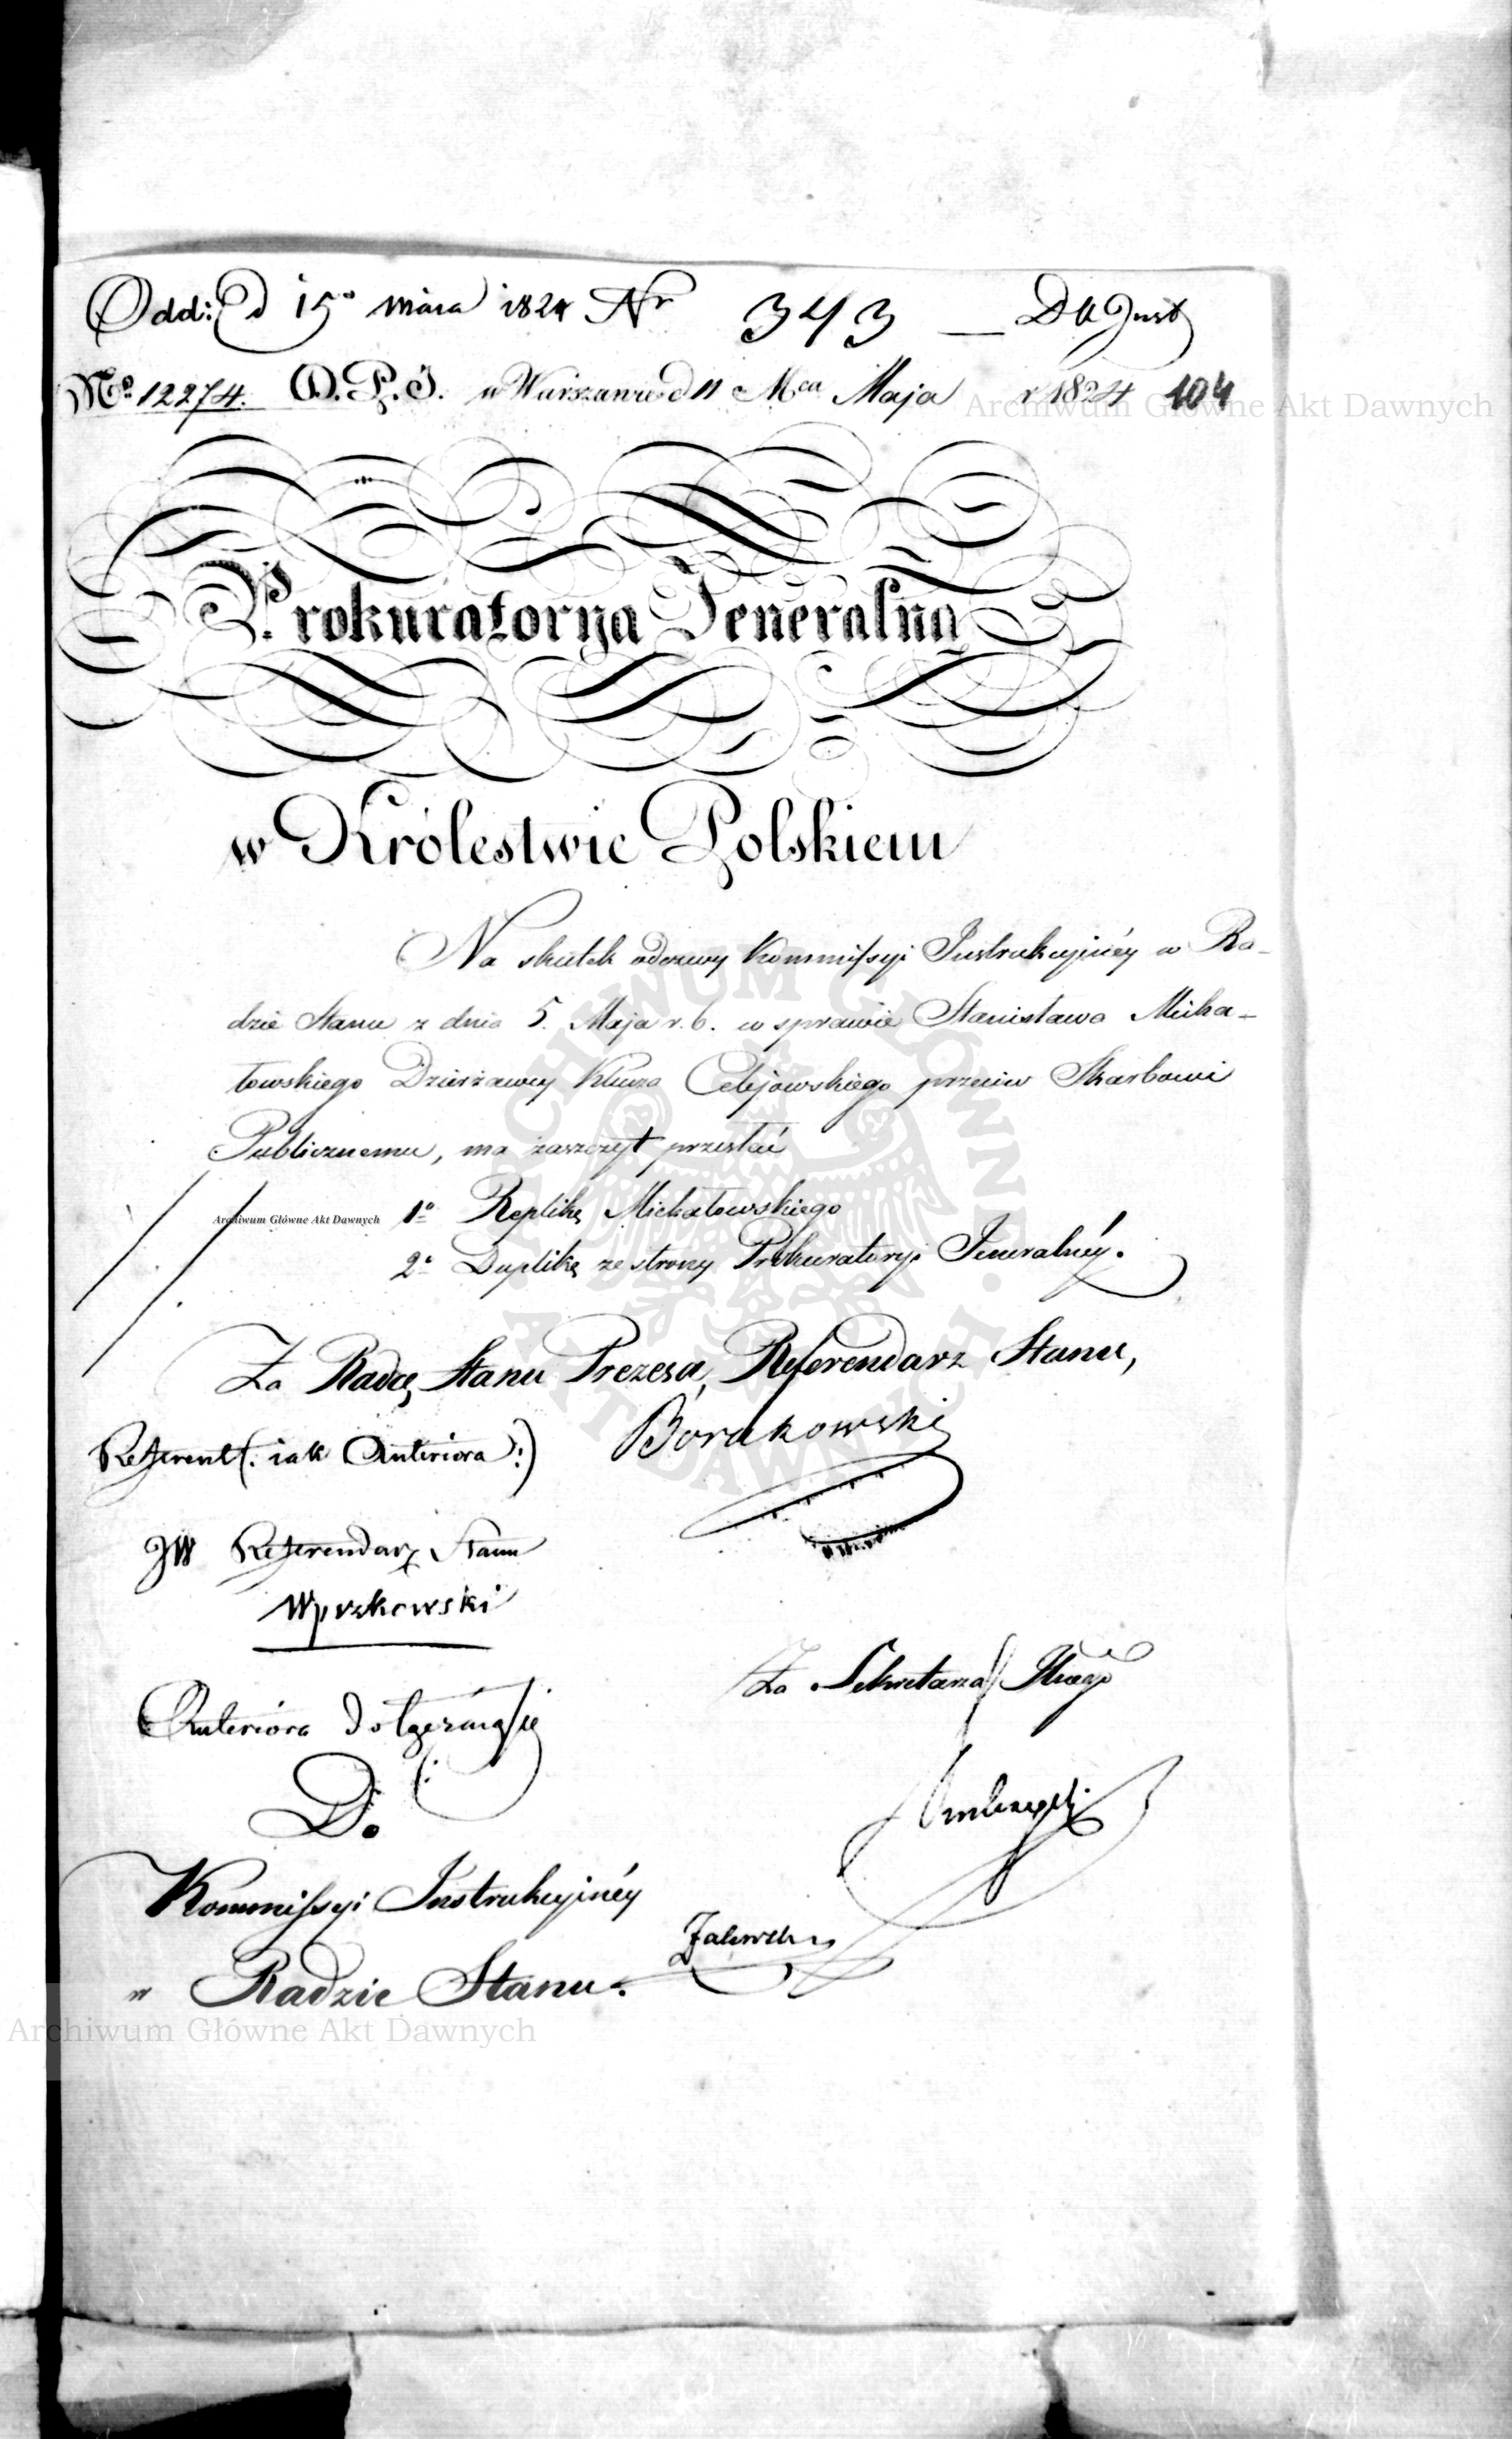 Odd: d 15o maia 1824 Nr 343 — D U Just
No 12274. O.P.S. w Warszawie d 11 Mca Maja r 1824 104
Archiwum Główne Akt Dawnych
Prokuratorya Jeneralna
w Królestwie Polskiem
Na skutek odezwy Kommissyi Instrukcyinéy w Ra-
dzie Stanu z dnia 5. Maja r. b. w sprawie Stanisława Micha-
łowskiego Dzierżawcy Klucza Celejowskiego przeciw Skarbowi
Publicznemu, ma zaszczyt przesłać
1o Replikę Michałowskiego
Archiwum Główne Akt Dawnych
2o Duplikę ze strony Prokuratoryi Jeneralnéy.
Za Radcę Stanu Prezesa, Referendarz Stanu,
Borakowski
Referent (: iak Anteriora :)
JW Referendarz Stanu
Wyczkowski
Za Sekretarza
Anteriora dołączaią się
D.
Kommissyi Instrukcyinéy
Zalewski
w Radzie Stanu.
Archiwum Główne Akt Dawnych
ARCHIWUM GŁÓWNE AKT DAWNYCH